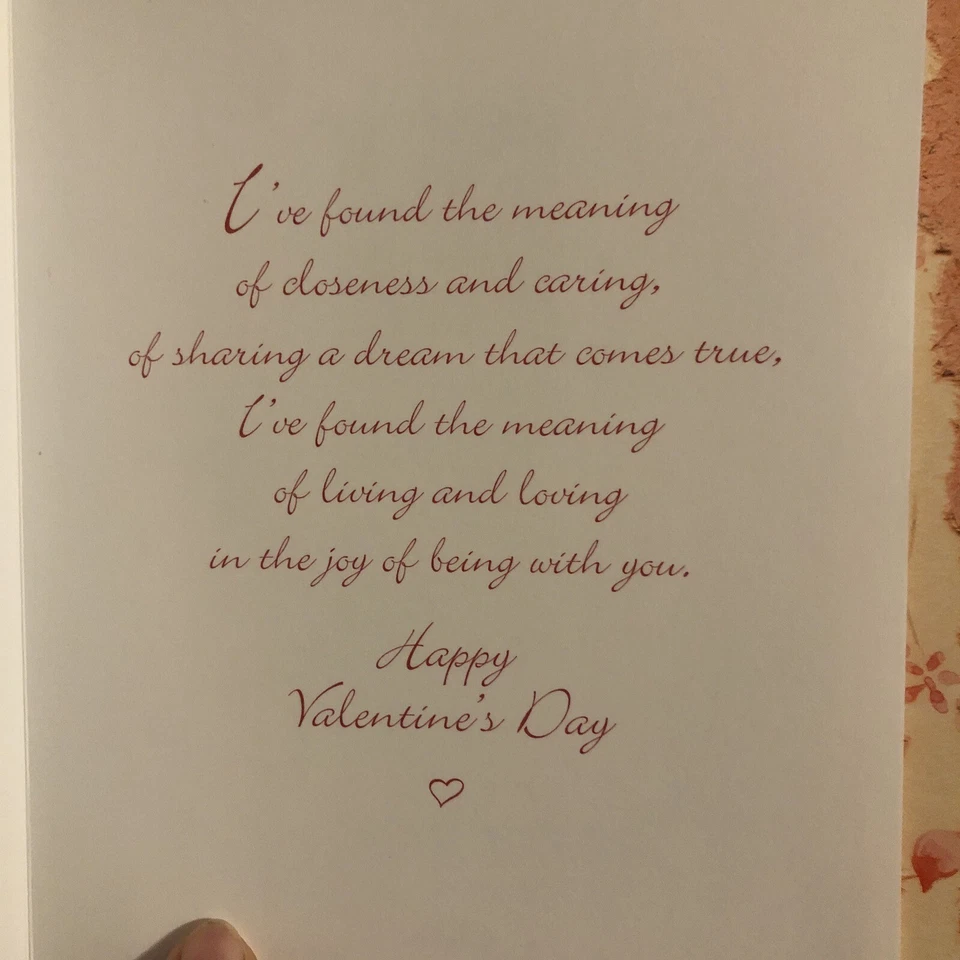 I've found the meaning
of closeness and caring,
of sharing a dream that comes true,
I've found the meaning
of living and loving
in the joy of being with you.
Happy
Valentine's Day